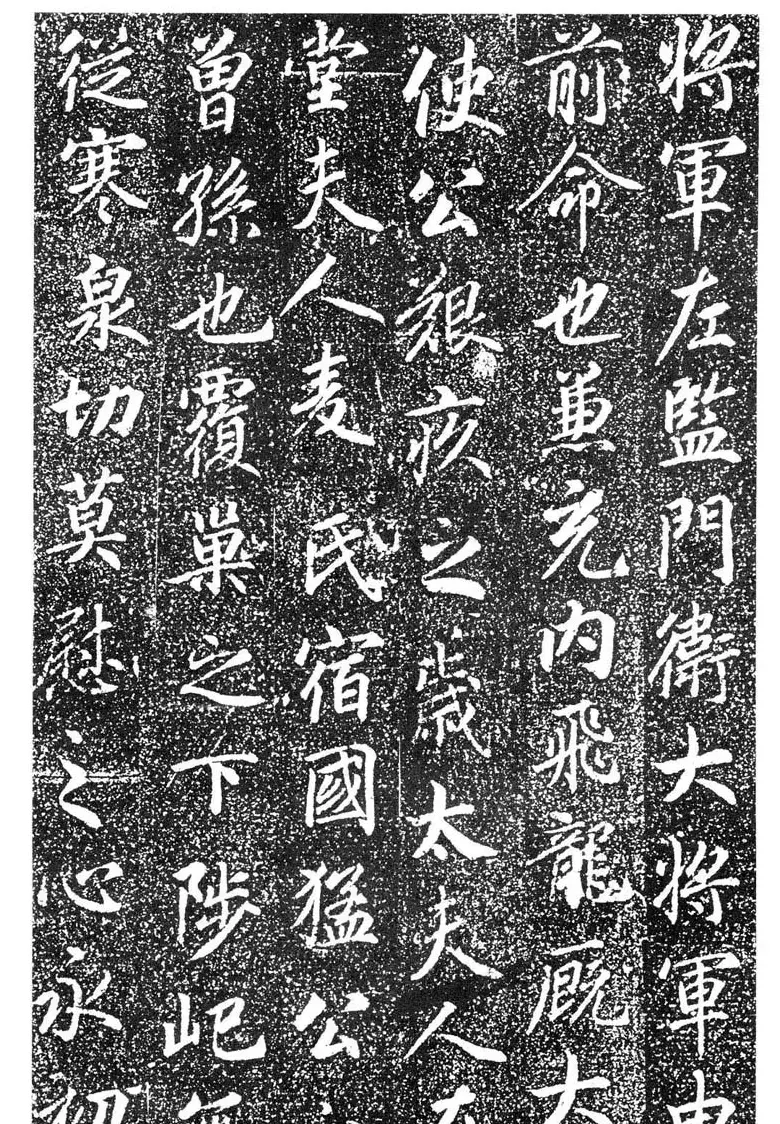 將軍左監門衛大將軍申
前命也兼充内飛龍厩大
使公艱疚之歲太夫人在
堂夫人麦氏宿國猛公
曾孫也覆巢之下陟屺無
從寒泉切莫慰之心永初